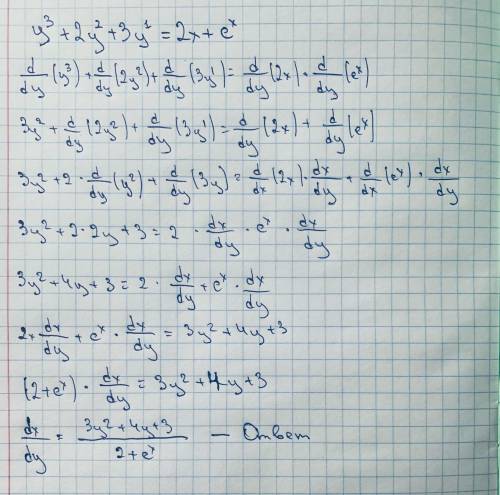 y³ + 2y² + 3y¹ = 2x + eˣ
d/dy (y³) + d/dy (2y²) + d/dy (3y¹) = d/dy (2x) + d/dy (eˣ)
3y² + d/dy (2y²) + d/dy (3y¹) = d/dy (2x) + d/dy (eˣ)
3y² + 2 · d/dy (y²) + d/dy (3y) = d/dx (2x) · dx/dy + d/dx (eˣ) · dx/dy
3y² + 2 · 2y + 3 = 2 · dx/dy · eˣ · dx/dy
3y² + 4y + 3 = 2 · dx/dy + eˣ · dx/dy
2x dx/dy + eˣ · dx/dy = 3y² + 4y + 3
(2 + eˣ) · dx/dy = 3y² + 4y + 3
dx/dy = 3y² + 4y + 3 / 2 + eˣ — Ответ